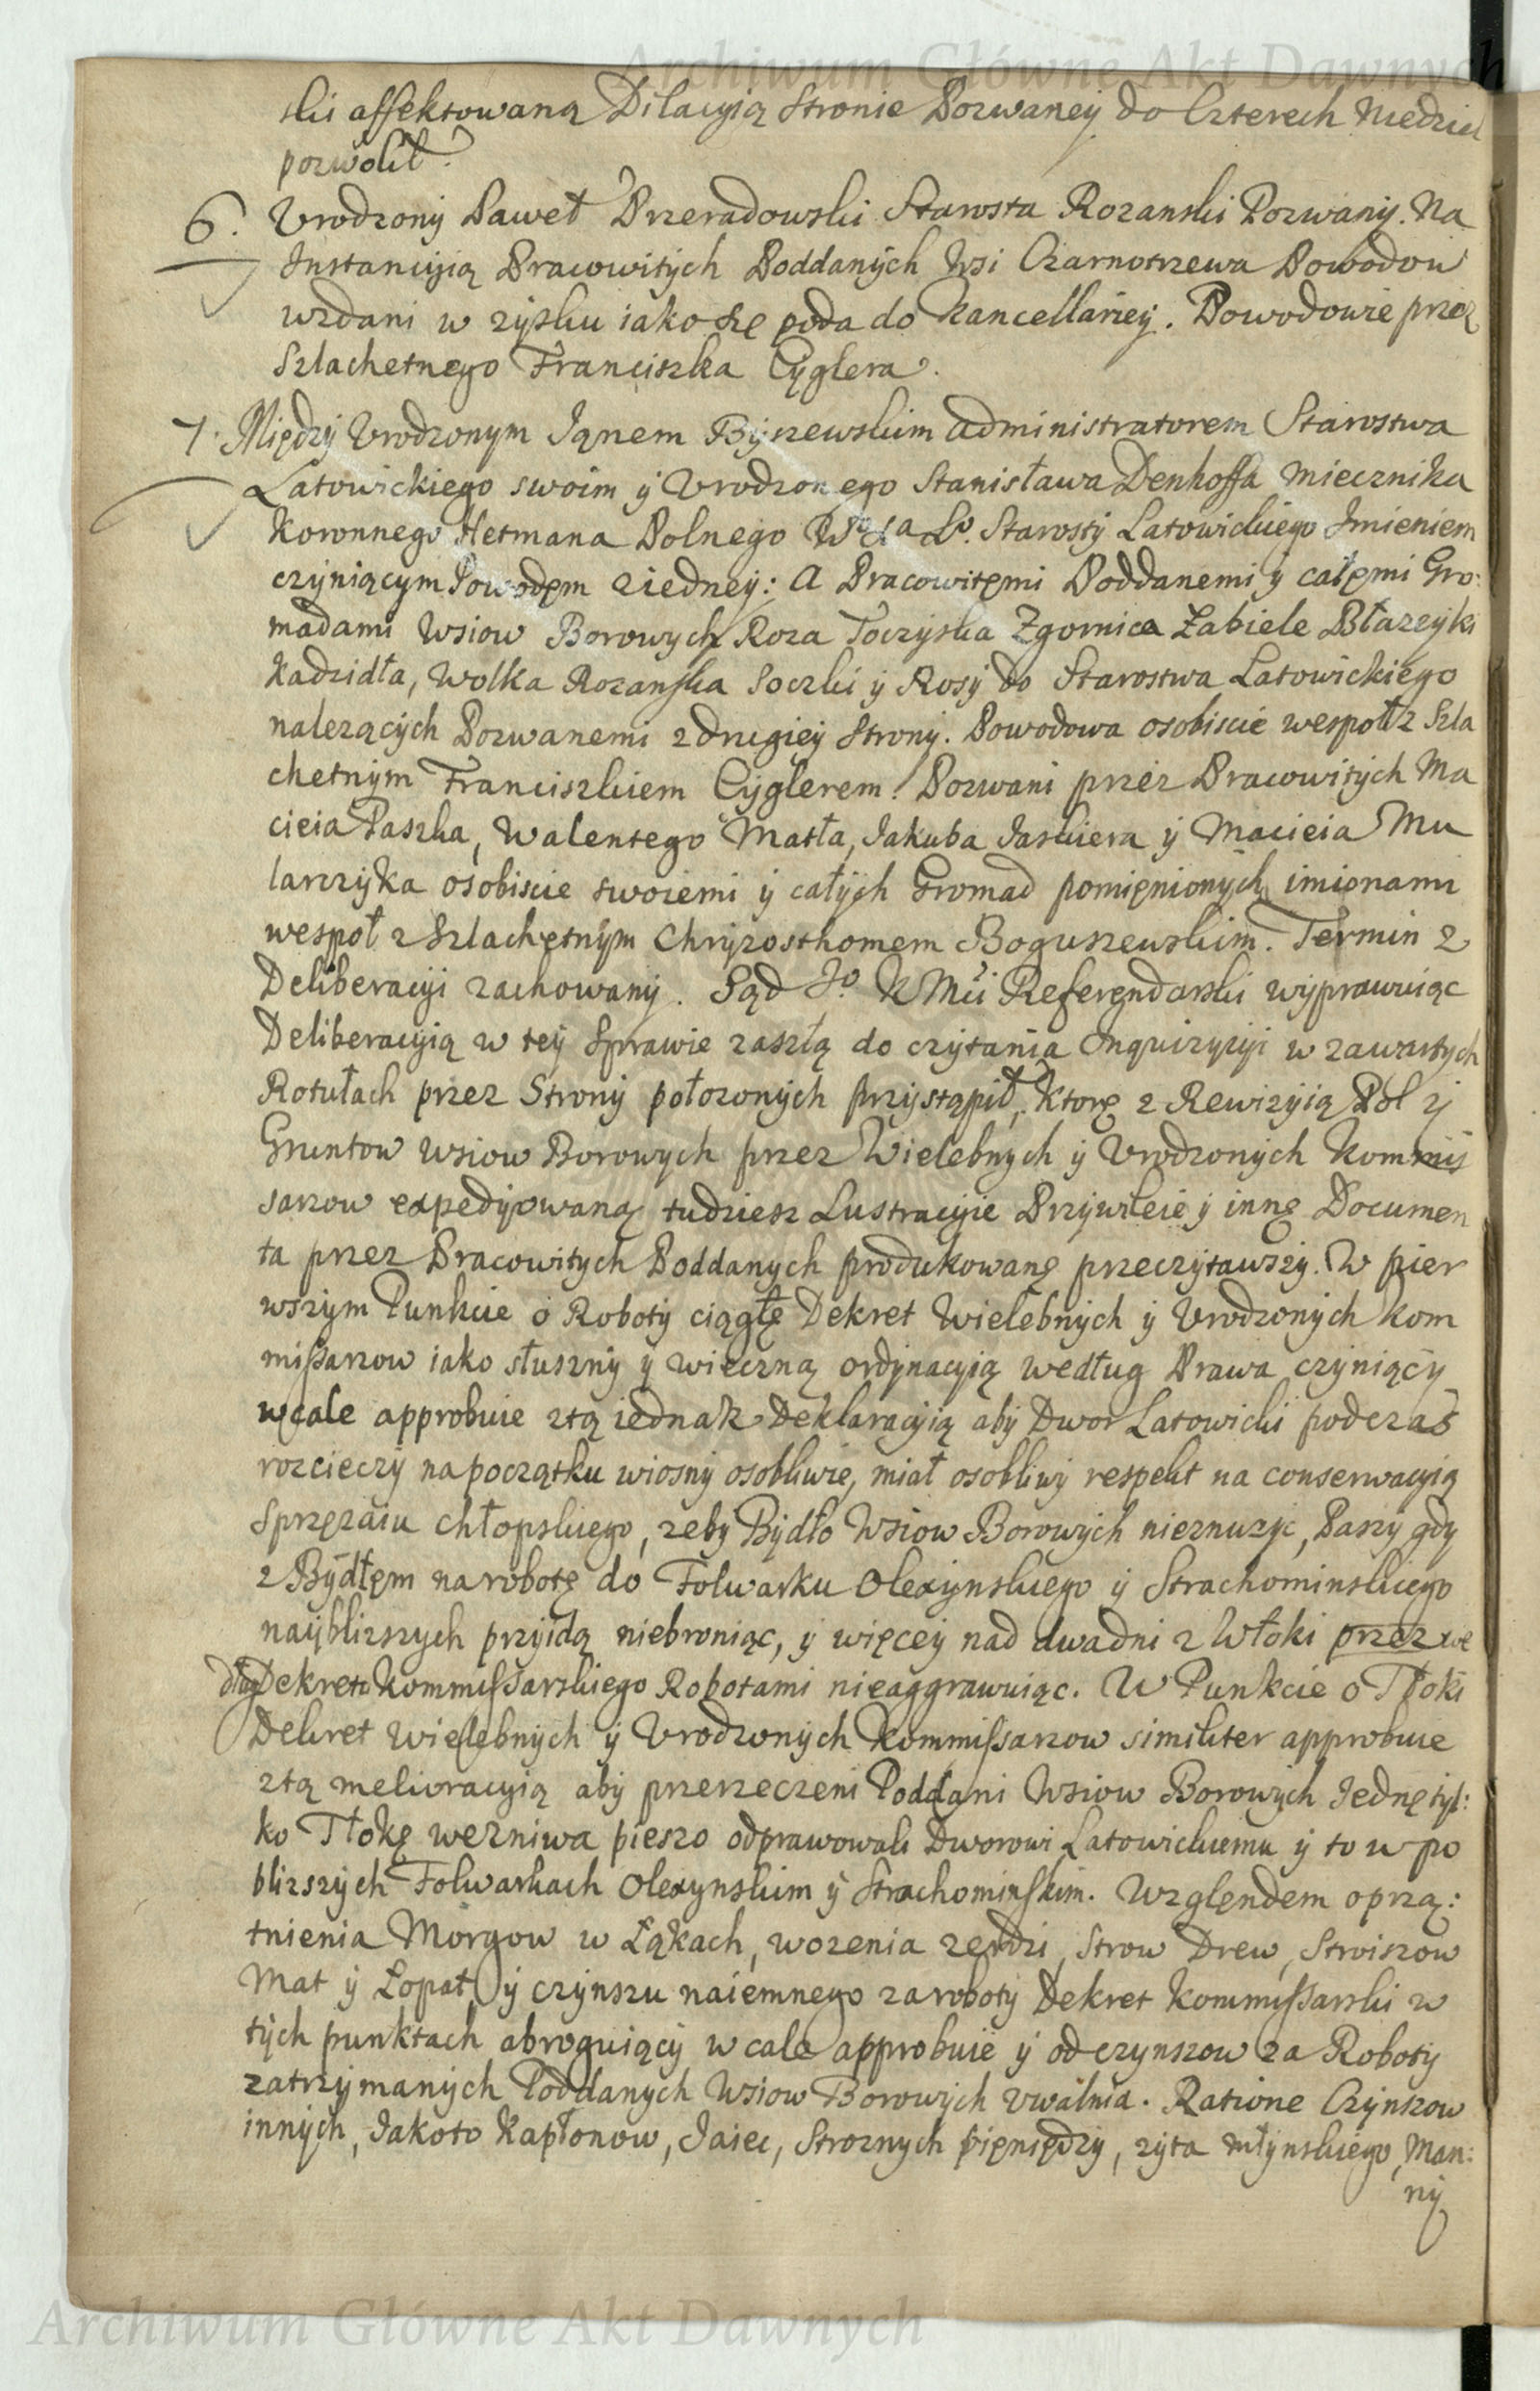 Archiwum Główne Akt Dawnych
ski affektowaną Dilacyią Stronie Pozwaney do Czterech Niedziel
pozwolił.
6. Vrodzony Paweł Przeradowski Starosta Rozanski Pozwany. Na
Instancyią Pracowitych Poddanych Wsi Czarnotrzewa Powodow
wzdani w zysku iako się poda do Kancellariey. Powodowie przez
Szlachetnego Franciszka Cyglera.
7. Między Vrodzonym Ianem Byszewskim Administratorem Starostwa
Latowickiego swoim y Vrodzonego Stanisława Denhoffa Miecznika
Koronnego Hetmana Polnego Starosty Latowickiego Imieniem
czyniącym Powodem z iedney: A Pracowitemi Poddanemi y całemi Gro:
madami Wsiow Borowych Roza Toczyska Zgornica Zabiele Błazeyki
Kadzidła, Wolka Rozanska Soczki y Rosy do Starostwa Latowickiego
nalezących Pozwanemi z drugiey Strony. Powodowa osobiscie wespoł z Szla
chetnym Franciszkiem Cyglerem. Pozwani przez Pracowitych Ma
cieia Paszka, Walentego Matła, Jakuba Jaskiera y Macieia Mu
larczyka osobiscie swoiemi y całych Gromad pomienionych imionami
wespoł z Szlachetnym Chryzosthomem Boguszewskim. Termin z
Deliberacyi zachowany. Sąd Jo. K Mci Referendarski wyprawuiąc
Deliberacyią w tey Sprawie zaszłą do czytania Inquizycyi w zawartych
Rotułach przez Strony położonych przystąpił, ktore z Rewizyią Pol y
Gruntow Wsiow Borowych przez Wielebnych y Vrodzonych Kommis
sarzow expedyowaną tudziesz Lustracyie Przywileie y inne Documen
ta przez Pracowitych Poddanych produkowane przeczytawszy. W pier
wszym Punkcie o Roboty ciągłe Dekret Wielebnych y Vrodzonych Kom
missarzow iako słuszny y wieczną ordynacyią według Prawa czyniący
wcale approbuie z tą iednak Deklaracyią aby Dwor Latowicki podczas
rozcieczy na początku wiosny osobliwie, miał osobliwy respekt na conserwacyią
Sprzęzaiu chłopskiego, zeby Bydło Wsiow Borowych nieznuzyc, Paszy gdy
z Bydłem na robotę do Folwarku Olexynskiego y Strachominskiego
naybliszszych przyidą niebroniąc, y więcey nad dwa dni z Włoki przez we
dług Dekretu Kommissarskiego Robotami nieaggrawuiąc. W Punkcie o Tłoki
Dekret Wielebnych y Vrodzonych Kommissarzow similiter approbuie
z tą melioracyią aby przerzeczeni Poddani Wsiow Borowych Jednę tyl:
ko Tłokę we zniwa pieszo odprawowali Dworowi Latowickiemu y to w po
blizszych Folwarkach Olexynskim y Strachominskim. Względem oprzą:
tnienia Morgow w Łąkach, wozenia zerdzi, Strow Drew, Stroiszow
Mat y Łopat y czynszu naiemnego za roboty Dekret Kommissarski w
tych punktach abroguiący wcale approbuie y od czynszow za Roboty
zatrzymanych Poddanych Wsiow Borowych vwalnia. Ratione Czynszow
innych, Jakoto Kapłonow, Jaiec, Stroznych pieniędzy, zyta młynskiego, Man:
ny
Archiwum Główne Akt Dawnych